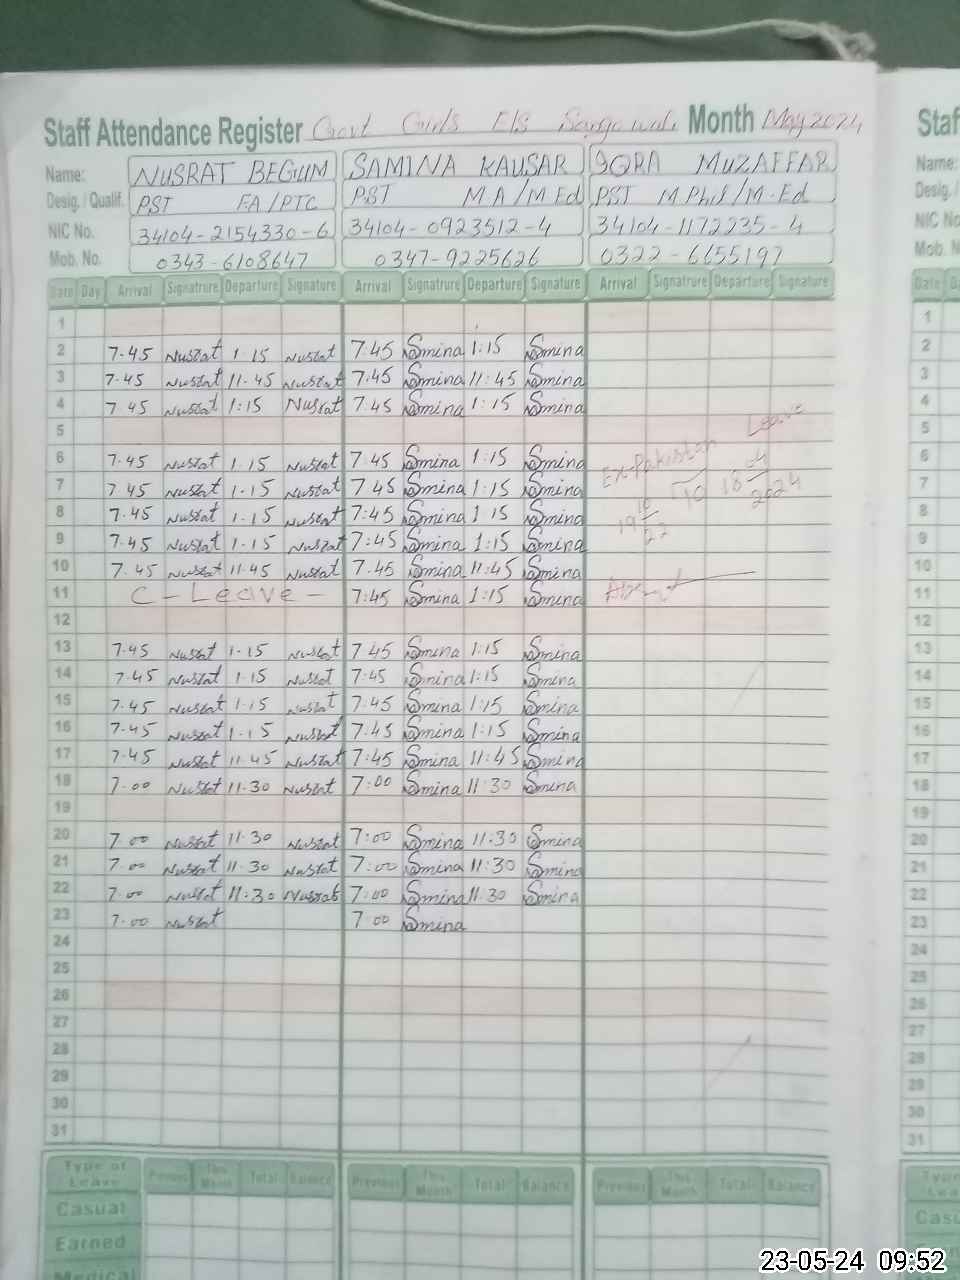 Staff Attendance Register Govt Girls E/S Month May 2024
Staf
Name: NUSRAT BEGUM SAMINA KAUSAR IQRA MUZAFFAR
Name:
Desig. / Qualif. PST FA/PTC PST MA/M Ed PST M Phil/M-Ed
Desig.
NIC No. 34104-2154330-6 34104-0923512-4 34104-1172235-4
NIC No
Mob. No. 0343-6108647 0347-9225626 0322-6655197
Mob. N
Date Day Arrival Signatrure Departure Signature Arrival Signatrure Departure Signature Arrival Signatrure Departure Signature
Date D
1
2 7-45 Nusrat 1-15 Nusrat 7:45 Samina 1:15 Samina
3 7-45 Nusrat 11-45 Nusrat 7:45 Samina 11:45 Samina
4 7 45 Nusrat 1:15 Nusrat 7:45 Samina 1:15 Samina
5 Leave
6 7-45 Nusrat 1-15 Nusrat 7:45 Samina 1:15 Samina Ex-Pakistan
7 7-45 Nusrat 1-15 Nusrat 7 45 Samina 1:15 Samina
8 7-45 Nusrat 1-15 Nusrat 7:45 Samina 1 15 Samina
9 7-45 Nusrat 1-15 Nusrat 7:45 Samina 1:15 Samina
10 7-45 Nusrat 11-45 Nusrat 7.45 Samina 11:45 Samina
11 C-Leave- 7:45 Samina 1:15 Samina Absent
12
13 7-45 Nusrat 1-15 Nusrat 7 45 Samina 1:15 Samina
14 7-45 Nusrat 1-15 Nusrat 7:45 Samina 1:15 Samina
15 7-45 Nusrat 1-15 Nusrat 7:45 Samina 1:15 Samina
16 7-45 Nusrat 1-15 Nusrat 7:45 Samina 1:15 Samina
17 7-45 Nusrat 11-45 Nusrat 7:45 Samina 11:45 Samina
18 7-00 Nusrat 11-30 Nusrat 7:00 Samina 11:30 Samina
19
20 7-00 Nusrat 11-30 Nusrat 7:00 Samina 11:30 Samina
21 7-00 Nusrat 11-30 Nusrat 7:00 Samina 11:30 Samina
22 7-00 Nusrat 11:30 Nusrat 7:00 Samina 11:30 Samina
23 7-00 Nusrat 7:00 Samina
24
25
26
27
28
29
30
31
Type of Leave Previous This Month Total Balance Previous This Month Total Balance Previous This Month Total Balance
Casual
Earned
Medical
23-05-24 09:52